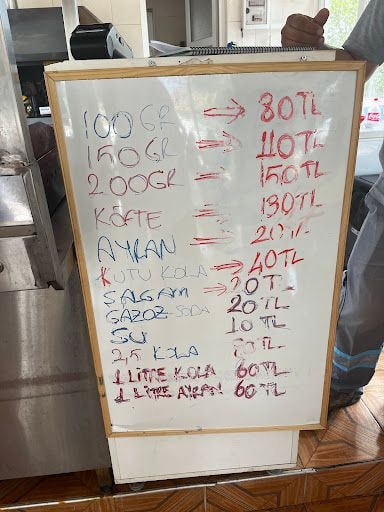 100 GR → 80 TL
150 GR → 110 TL
200 GR - 150 TL
KÖFTE = 130 TL
AYRAN = 20 TL
KUTU KOLA → 40 TL
ŞALGAM → 20 TL
GAZOZ-SODA 20 TL
SU 10 TL
2.5 KOLA TL
1 LİTRE KOLA 60 TL
1 LİTRE AYRAN 60 TL